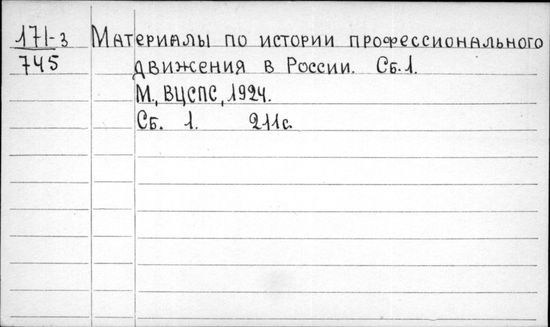 171-3 Материалы по истории профессионального
745 движения в России. Сб.1.
М., ВЦСПС, 1924.
Сб. 1. 211с.